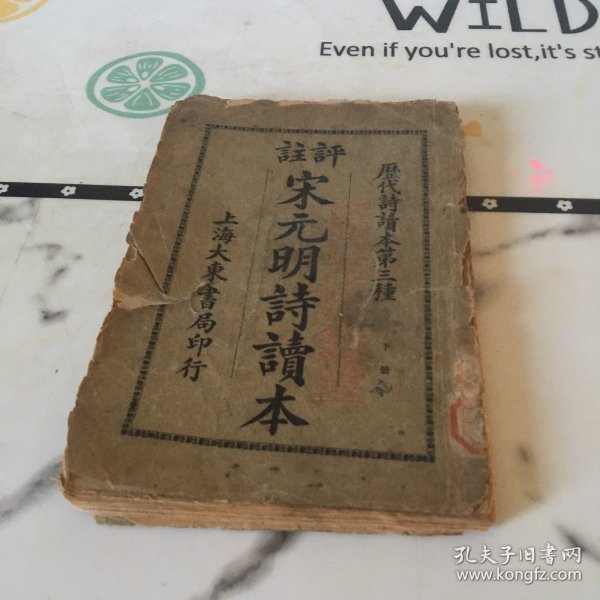 WILD
Even if you're lost,it's st
歷代詩讀本第三種
評註
宋元明詩讀本
上海大東書局印行
下冊
孔夫子旧书网
www.kongfz.com